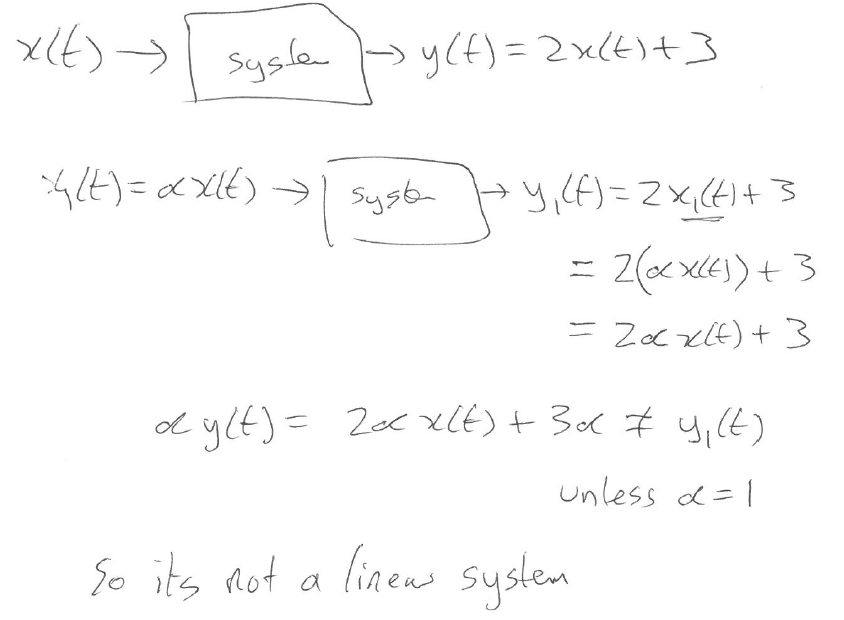 x(t) → system → y(t) = 2x(t) + 3
x₁(t) = αx(t) → syste → y₁(t) = 2x₁(t) + 3
= 2(αx(t)) + 3
= 2αx(t) + 3
αy(t) = 2αx(t) + 3α ≠ y₁(t)
unless α = 1
So its not a linear system